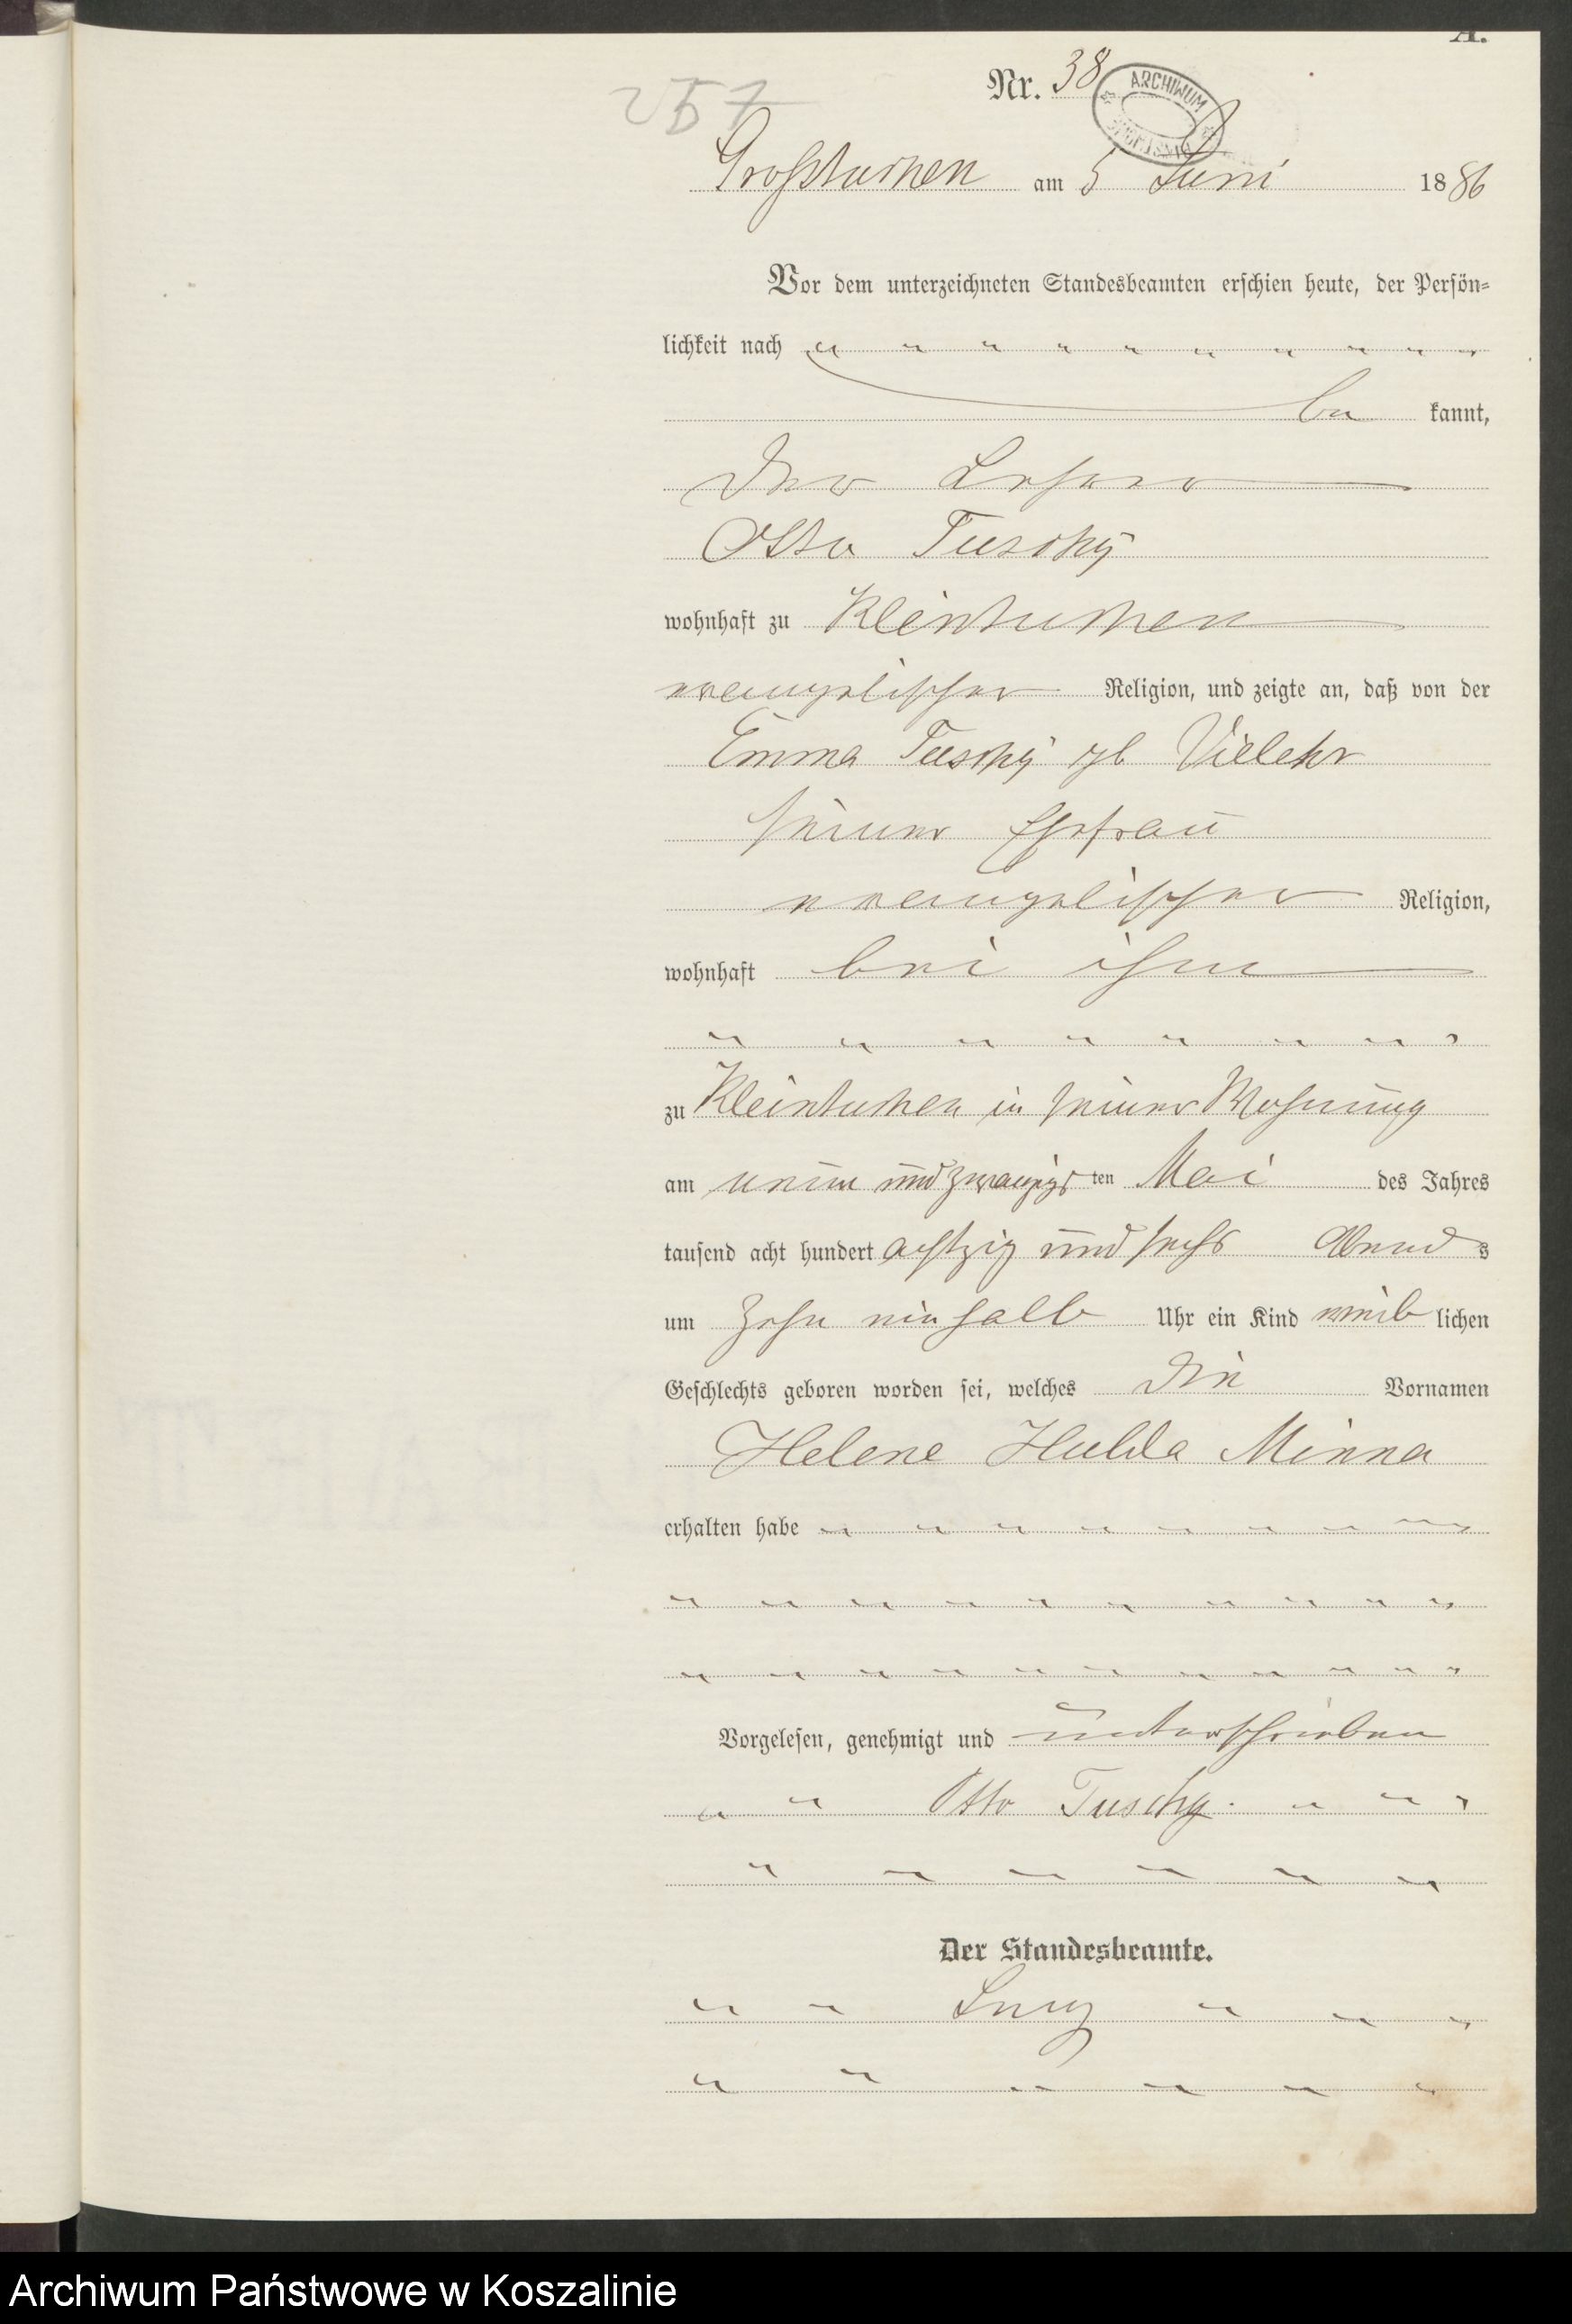 A.
257
Nr. 38
ARCHIWUM
Großtuchen am 5 Juni 1886
Vor dem unterzeichneten Standesbeamten erschien heute, der Persön=
lichkeit nach
be kannt,
Der Lehrer
Otto Tuschy
wohnhaft zu Kleintuchen
evangelischer Religion, und zeigte an, daß von der
Emma Tuschy gb Vielehr
seiner Ehefrau
evangelischer Religion,
wohnhaft bei ihm
zu Kleintuchen in seiner Wohnung
am neun und zwanzigs ten Mai des Jahres
tausend acht hundert achtzig und sechs Abend s
um zehn ein halb Uhr ein Kind weib lichen
Geschlechts geboren worden sei, welches die Vornamen
Helene Hulda Minna
erhalten habe
Vorgelesen, genehmigt und unterschrieben
Otto Tuschy.
Der Standesbeamte.
Archiwum Państwowe w Koszalinie